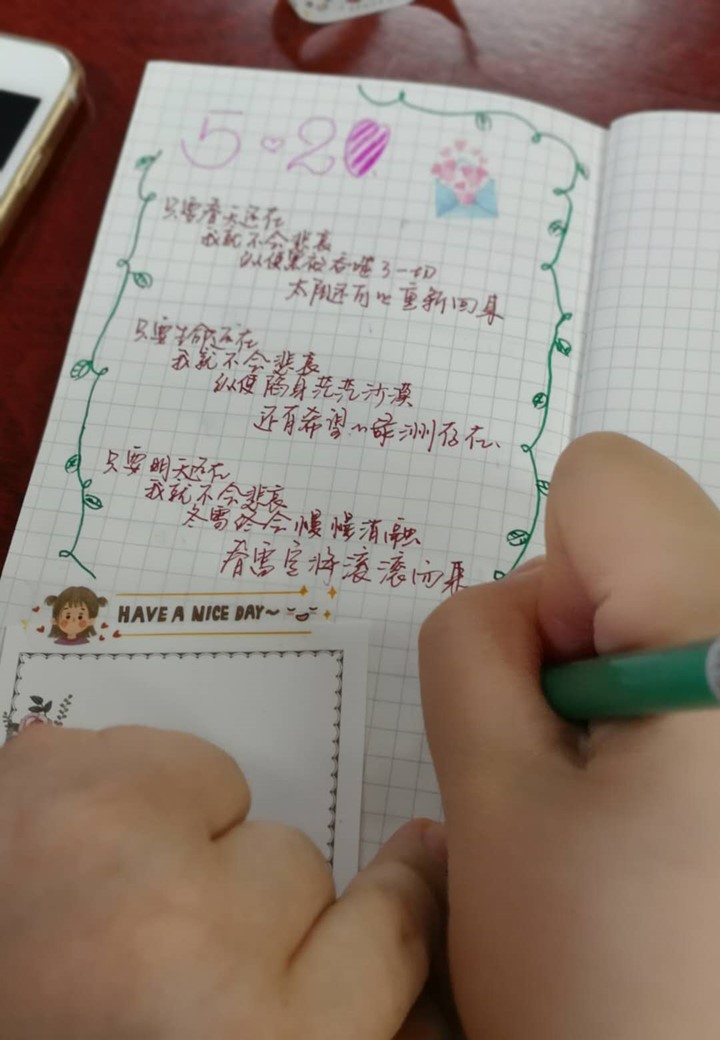 5·20
只要春天还在
我就不会悲哀
纵使黑夜吞噬了一切
太阳还可以重新回来
只要生命还在
我就不会悲哀
纵使陷身茫茫沙漠
还有希望的绿洲存在、
只要明天还在
我就不会悲哀
冬雪终会慢慢消融
春雷定将滚滚而来
HAVE A NICE DAY~